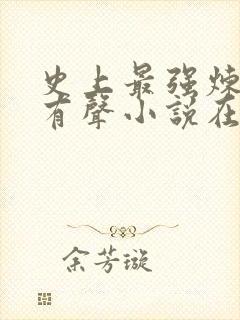 史上最强炼
有聲小說在
余芳璇